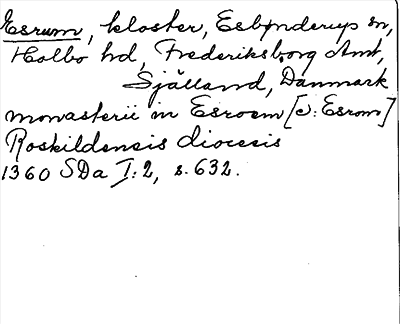 Esrum, kloster, Esbønderup sn,
Holbo hd, Frederiksborg Amt,
Själland, Danmark
monasterii in Esroem [ɔ: Esrom]
Roskildensis diocesis
1360 SDa I:2, s. 632.